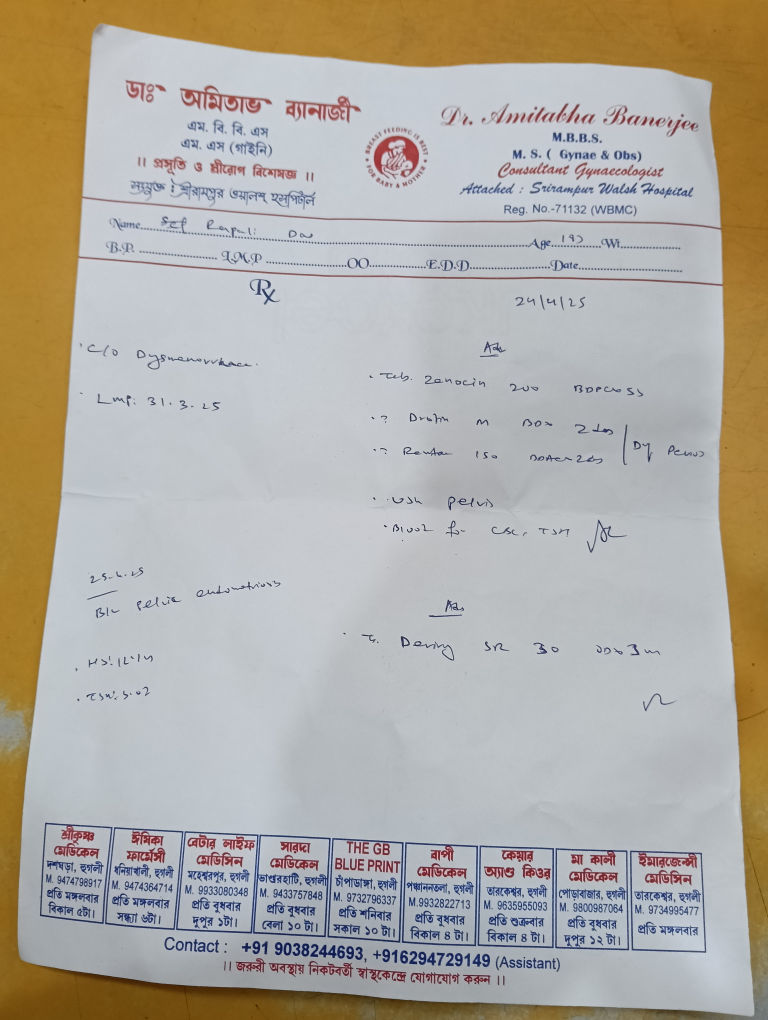 ডাঃ অমিতাভ ব্যানার্জী
এম. বি. বি. এস
এম. এস (গাইনি)
।। প্রসূতি ও স্ত্রীরোগ বিশেষজ্ঞ ।।
সংযুক্ত : শ্রীরামপুর ওয়ালশ্ হসপিটাল
BREAST FEEDING IS BEST
FOR BABY & MOTHER
Dr. Amitabha Banerjee
M.B.B.S.
M. S. ( Gynae & Obs)
Consultant Gynaecologist
Attached : Srirampur Walsh Hospital
Reg. No.-71132 (WBMC)
Name Age Wt
B.P. L.M.P OO E.D.D Date
Rx
24/4/25
C/O Dysmenorrhoea.
LMP: 31.3.25
Adv
Tab. Zenocin 200
? Drotin M
? 150
USG pelvis
Blood for CBC, TSH
B/L pelvic endometriosis
Adv
T. SR 30
শ্রীকৃষ্ণ মেডিকেল
দশঘড়া, হুগলী
M. 9474798917
প্রতি মঙ্গলবার
বিকাল ৫টা।
ঈষিকা ফার্মেসী
ধনিয়াখালী, হুগলী
M. 9474364714
প্রতি মঙ্গলবার
সন্ধ্যা ৬টা।
বেটার লাইফ মেডিসিন
মহেশ্বরপুর, হুগলী
M. 9933080348
প্রতি বুধবার
দুপুর ১টা।
সারদা মেডিকেল
ভাণ্ডারহাটি, হুগলী
M. 9433757848
প্রতি বুধবার
বেলা ১০ টা।
THE GB BLUE PRINT
চাঁপাডাঙ্গা, হুগলী
M. 9732796337
প্রতি শনিবার
সকাল ১০ টা।
বাপী মেডিকেল
পঞ্চাননতলা, হুগলী
M.9932822713
প্রতি বুধবার
বিকাল ৪ টা।
কেয়ার অ্যাণ্ড কিওর
তারকেশ্বর, হুগলী
M. 9635955093
প্রতি শুক্রবার
বিকাল ৪ টা।
মা কালী মেডিকেল
পোড়াবাজার, হুগলী
M. 9800987064
প্রতি বুধবার
দুপুর ১২ টা।
ইমারজেন্সী মেডিসিন
তারকেশ্বর, হুগলী
M. 9734995477
প্রতি মঙ্গলবার
Contact : +91 9038244693, +916294729149 (Assistant)
।। জরুরী অবস্থায় নিকটবর্তী স্বাস্থ্যকেন্দ্রে যোগাযোগ করুন ।।